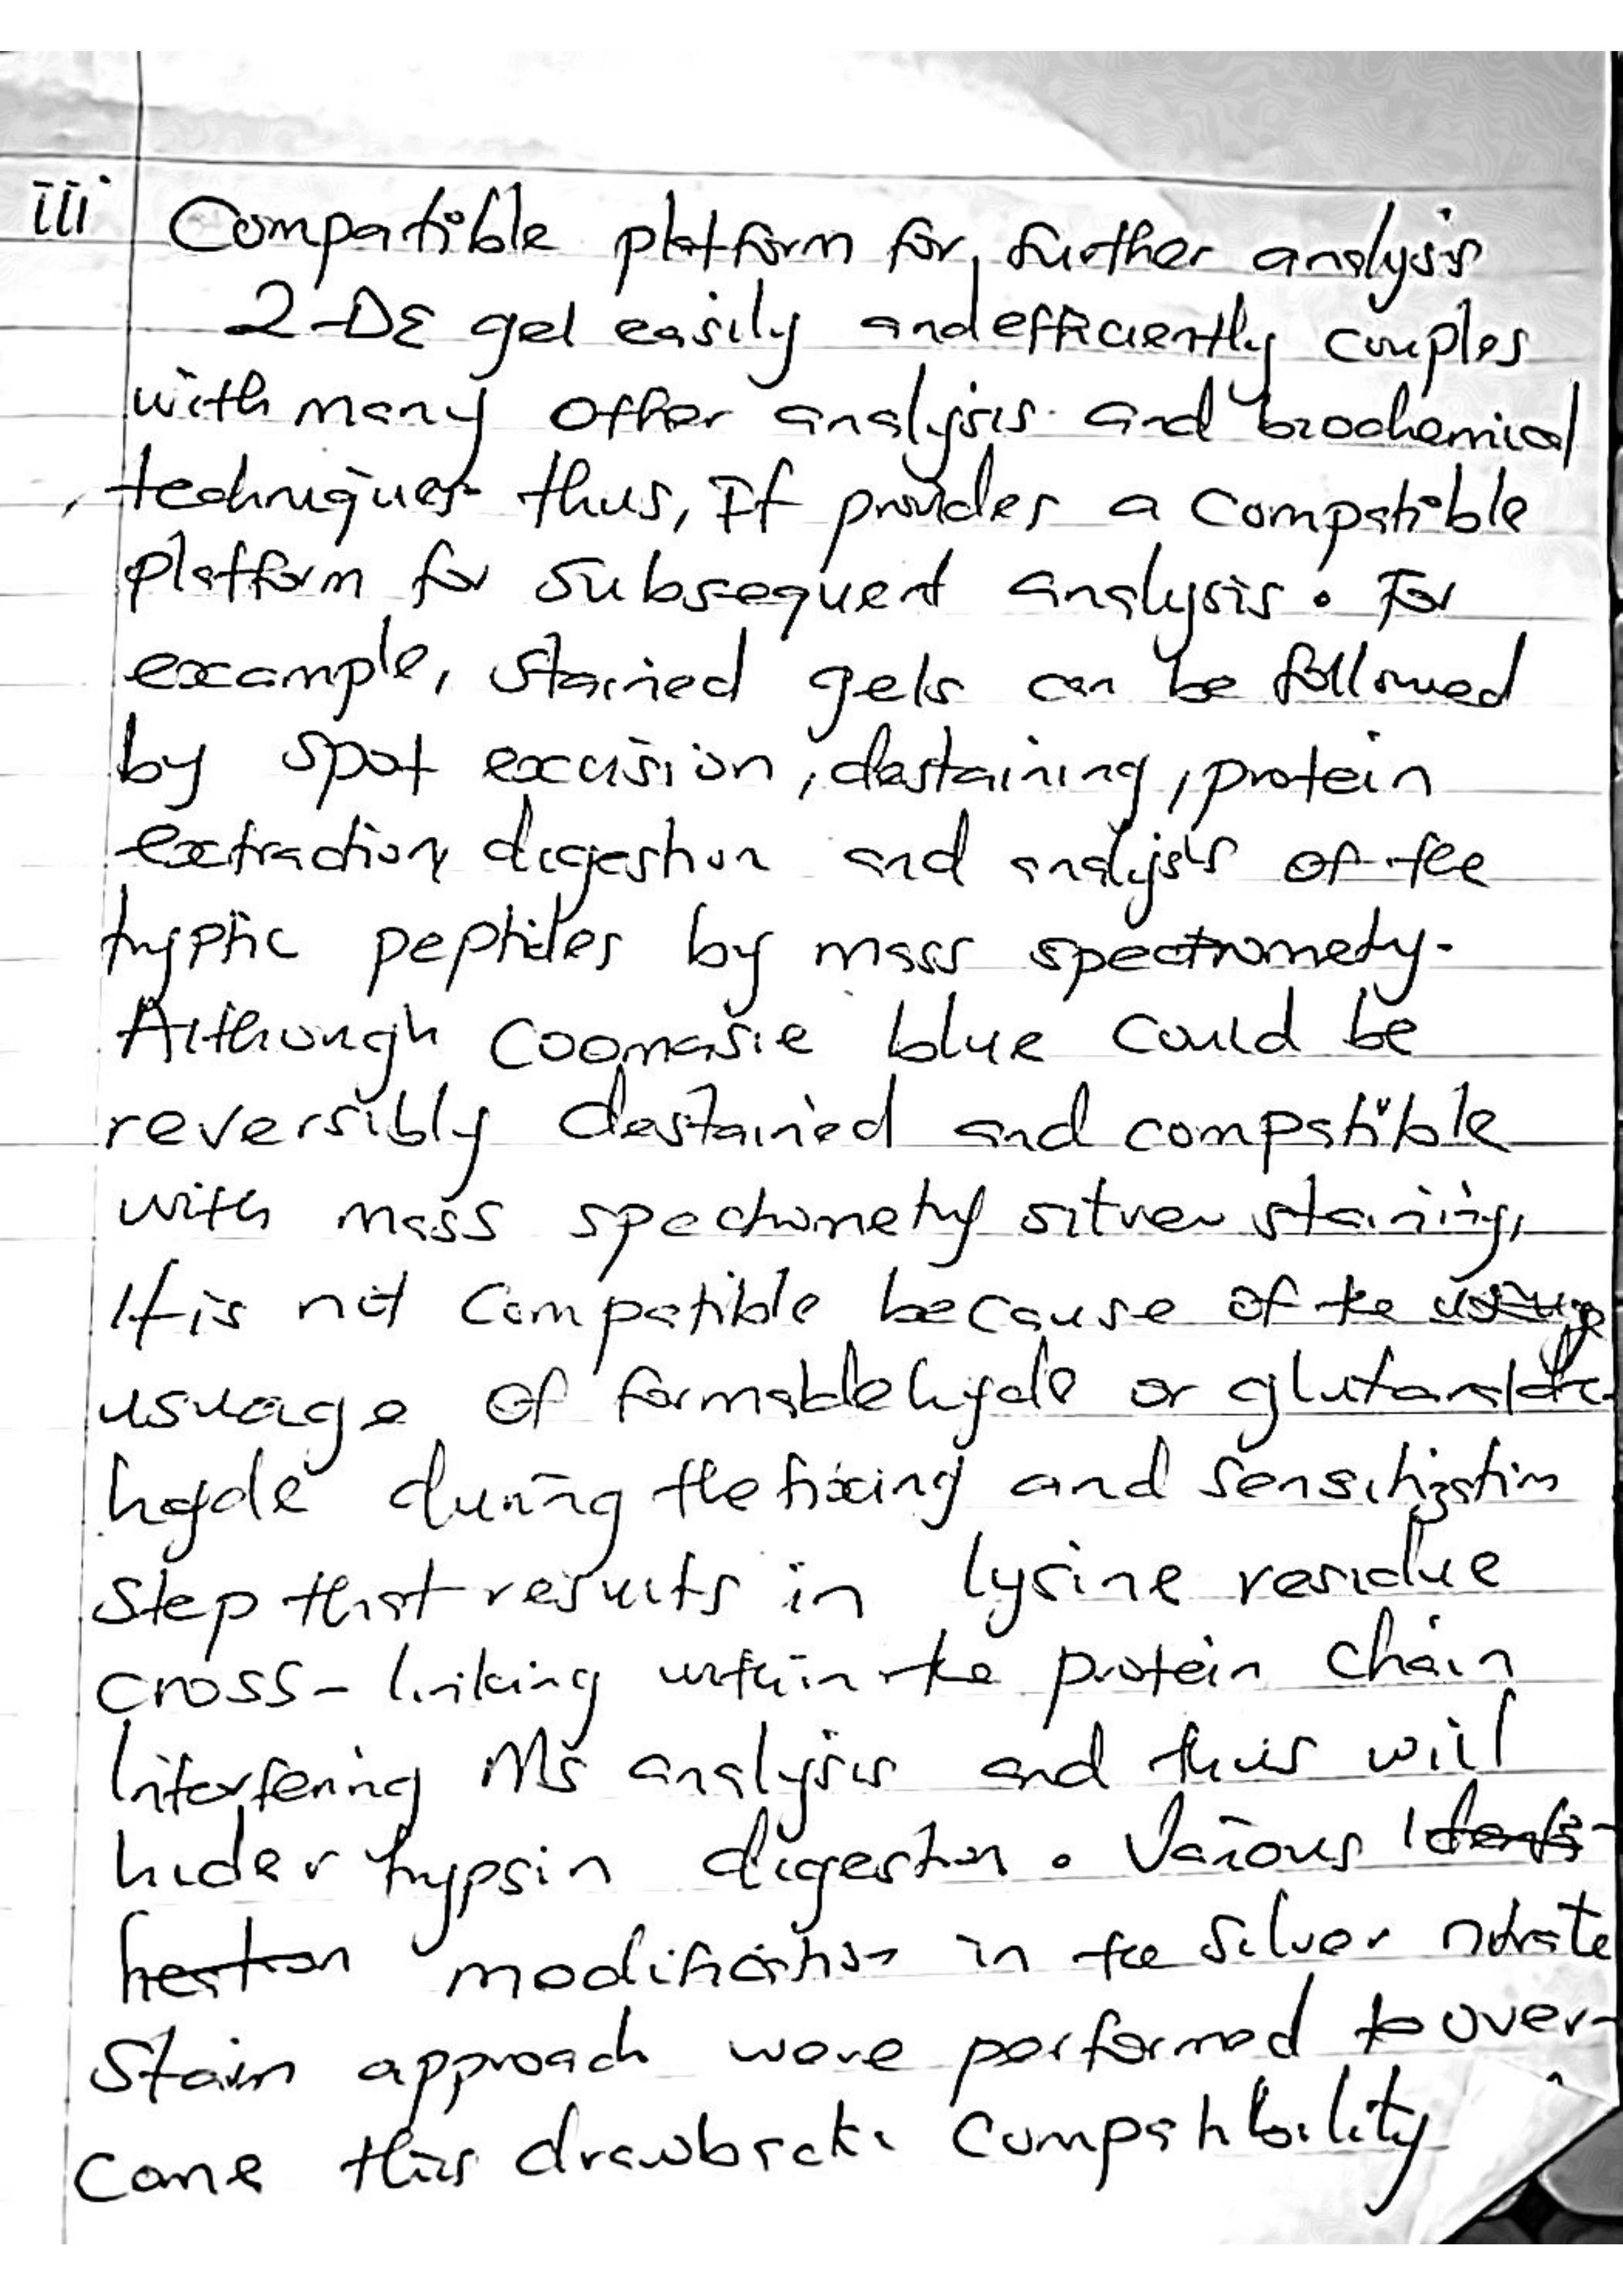 iii Compatible platform for further analysis
2-DE gel easily and efficiently couples
with many other analysis and biochemical
techniques thus, It provides a compatible
platform for subsequent analysis. For
example, stained gels can be followed
by spot excision, destaining, protein
extraction, digestion and analysis of the
tryptic peptides by mass spectrometry.
Although coomasie blue could be
reversibly destained and compatible
with mass spectrometry silver staining,
It is not compatible because of the
usuage of formaldehyde or glutaralde-
hyde during the fixing and sensitization
step that results in lysine residue
cross-linking within the protein chain
Interfering MS analysis and this will
hider trypsin digestion. Various
modification in the silver nitrate
stain approach were performed to over-
come this drawback. Compatibility